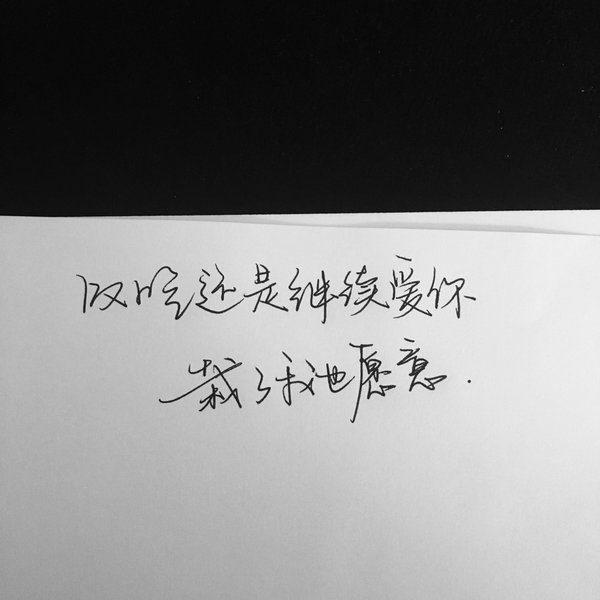 以后还是继续爱你
栽了我也愿意.